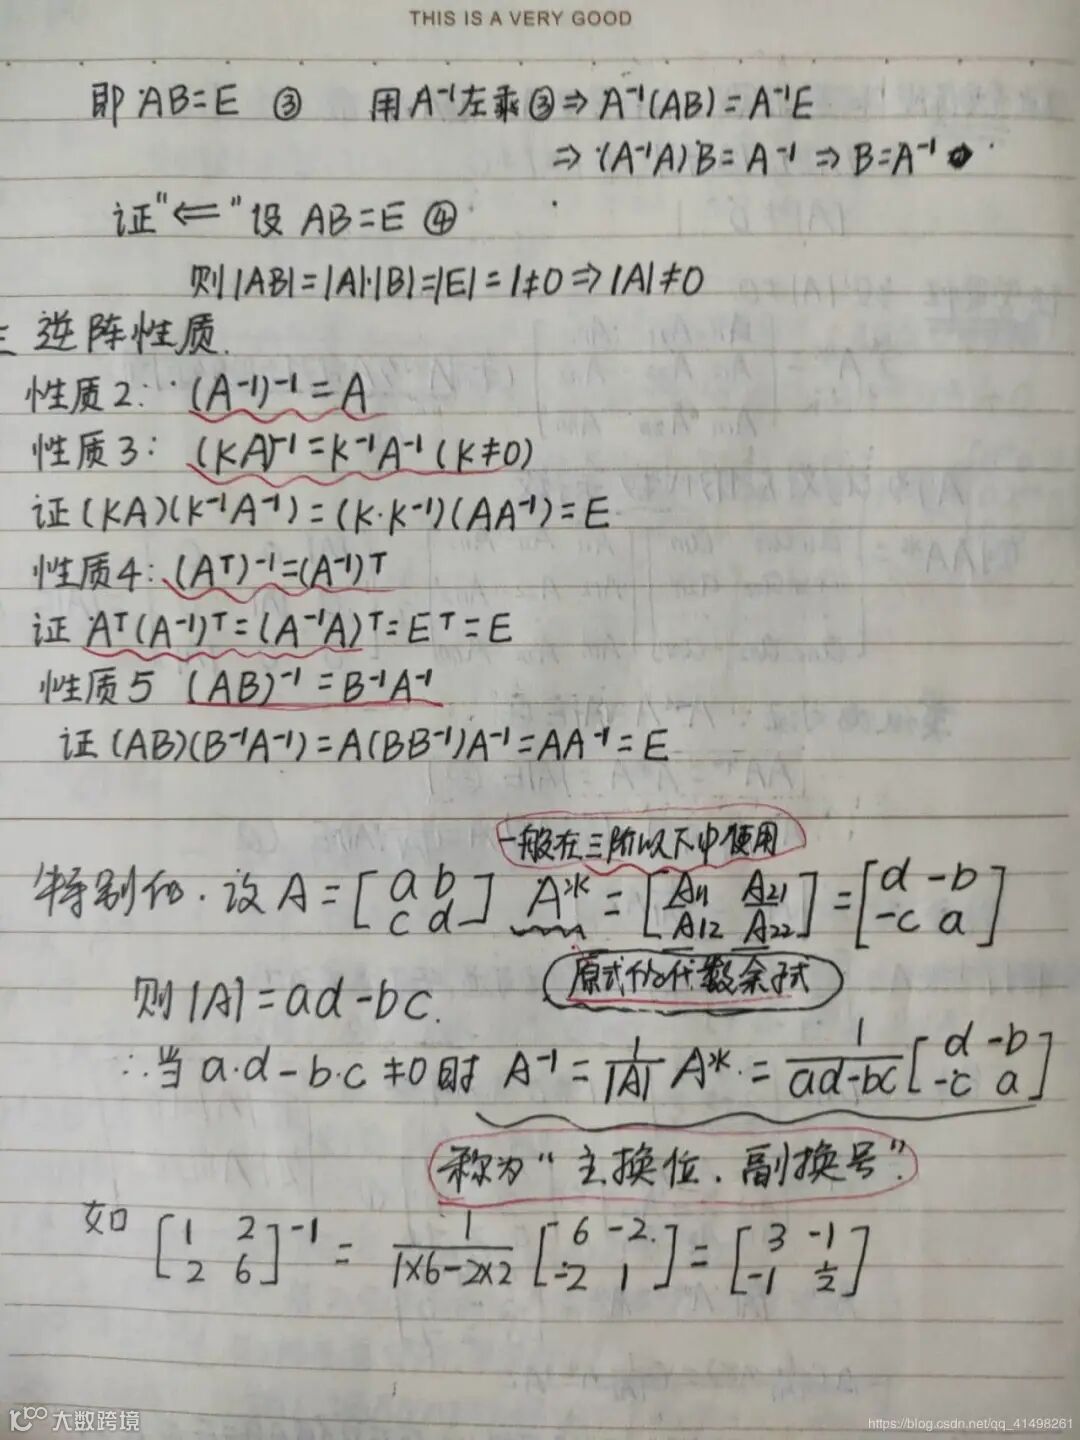 THIS IS A VERY GOOD
即 AB=E ③ 用A⁻¹左乘③⇒ A⁻¹(AB)=A⁻¹E
⇒(A⁻¹A)B=A⁻¹⇒B=A⁻¹
证"⇐"设 AB=E ④
则|AB|=|A|·|B|=|E|=1≠0⇒|A|≠0
逆阵性质.
性质2: (A⁻¹)⁻¹=A
性质3: (KA)⁻¹=K⁻¹A⁻¹(K≠0)
证(KA)(K⁻¹A⁻¹)=(K·K⁻¹)(AA⁻¹)=E
性质4: (Aᵀ)⁻¹=(A⁻¹)ᵀ
证 Aᵀ(A⁻¹)ᵀ=(A⁻¹A)ᵀ=Eᵀ=E
性质5 (AB)⁻¹=B⁻¹A⁻¹
证(AB)(B⁻¹A⁻¹)=A(BB⁻¹)A⁻¹=AA⁻¹=E
一般在三阶以下中使用
特别的.设A=[a b; c d] A*=[A11 A21; A12 A22]=[d -b; -c a]
原式的代数余子式
则|A|=ad-bc.
∴当a·d-b·c≠0时 A⁻¹=1/|A| A*=1/(ad-bc)[d -b; -c a]
称为"主换位.副换号".
如 [1 2; 2 6]⁻¹=1/(1×6-2×2)[6 -2; -2 1]=[3 -1; -1 1/2]
大数跨境
https://blog.csdn.net/qq_41498261